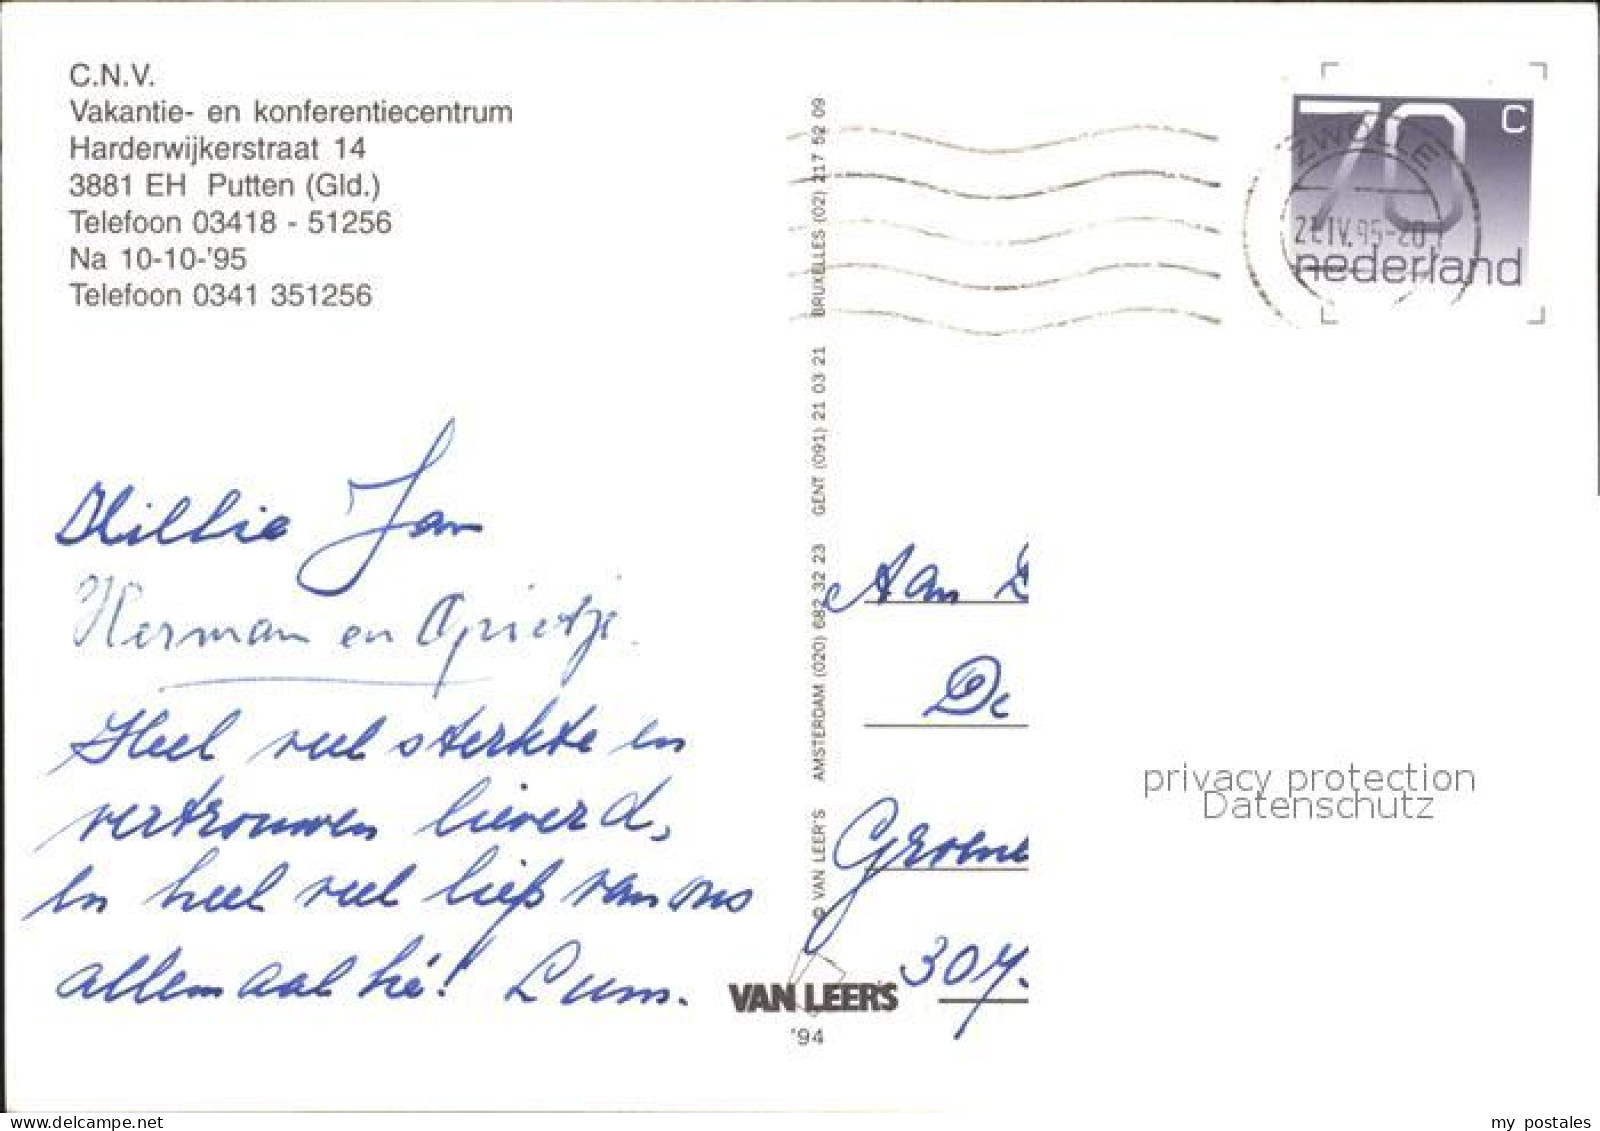 C.N.V.
Vakantie- en konferentiecentrum
Harderwijkerstraat 14
3881 EH Putten (Gld.)
Telefoon 03418 - 51256
Na 10-10-'95
Telefoon 0341 351256
70 c
nederland
ZWOLLE
21.IV.95-20
Jan
Herman en
Heel veel sterkte en
vertrouwen lieverd,
En heel veel liefs van ons
allemaal hé!
© VAN LEER'S AMSTERDAM (020) 682 32 23 GENT (091) 21 03 21 BRUXELLES (02) 217 52 09
VAN LEER'S
'94
Aan
De
Groene
privacy protection
Datenschutz
delcampe.net
my_postales